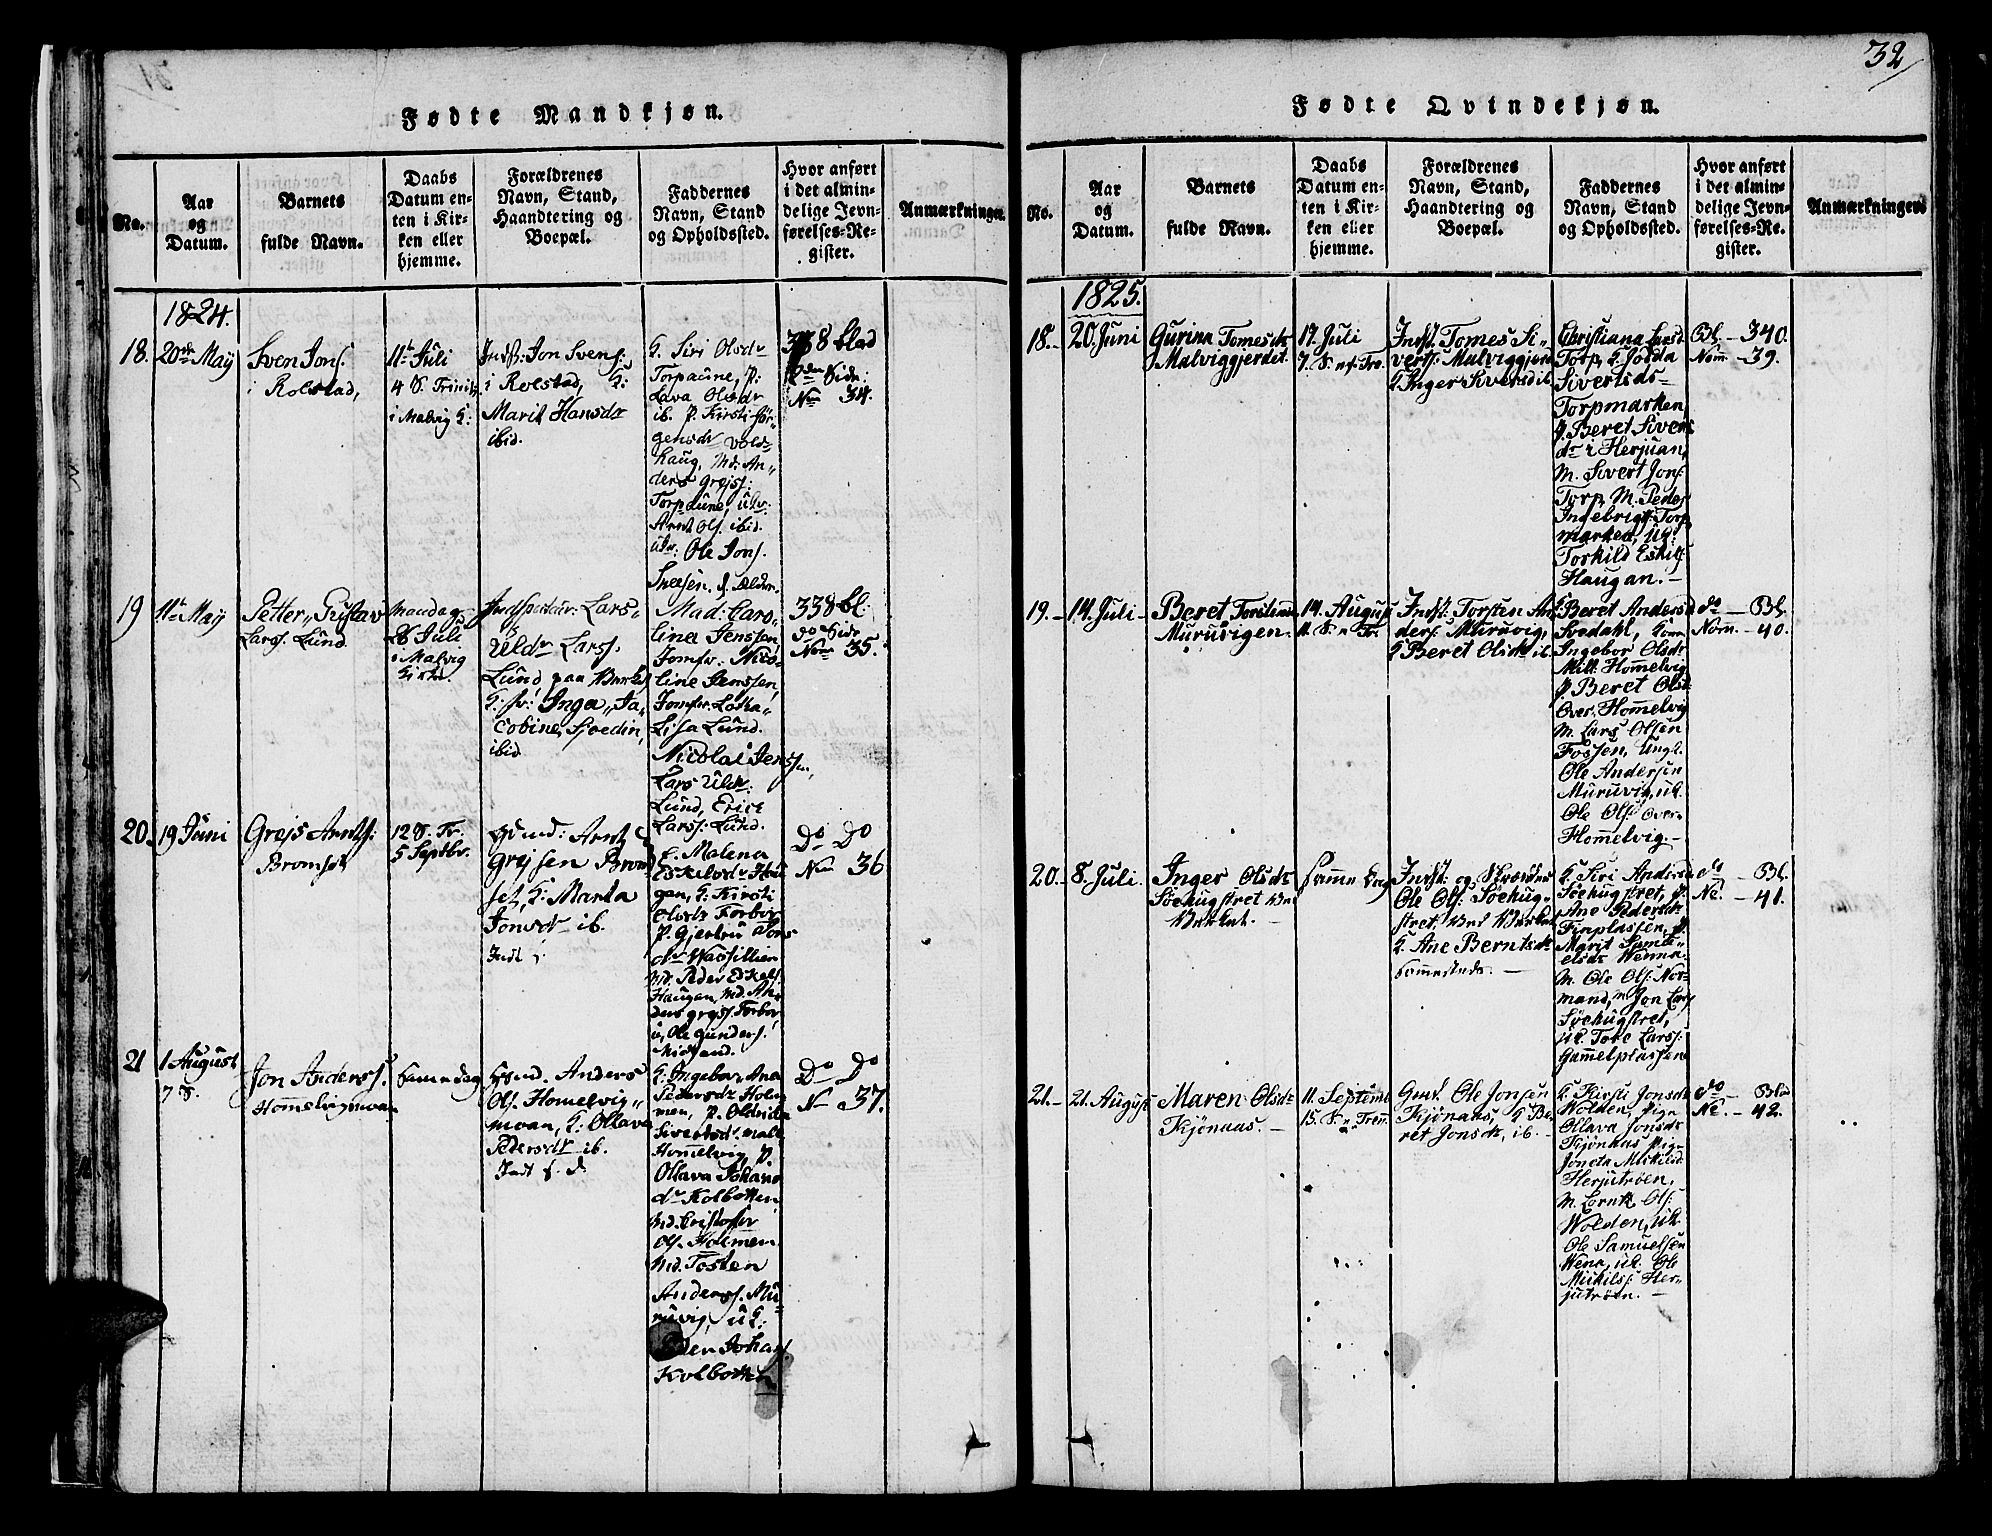 32
Fødte Mandkjøn.
No.
Aar
og
Datum.
Barnets
fulde Navn.
Daabs
Datum en-
ten i Kir-
ken eller
hjemme.
Forældrenes
Navn, Stand,
Haandtering og
Boepæl.
Faddernes
Navn, Stand
og Opholdssted.
Hvor anført
i det almin-
delige Jevn-
førelses-Re-
gister.
Anmærkninger
1824.
18.
20de May
Sven Jons.
i Rolstad,
11te Juli
4 S. Trinit:
i Malvig K.
Indst: Jon Svens:
i Rolstad, K:
Marit Hansdr
ibid.
K. Siri Olsdr
Torpaune, p:
Lava Olsdr
ib. p. Kirsti Jør-
gensdr Vold-
haug, Md: An-
ders Grejs:
Torpaune, uk:
Arnt Ols. ibid.
Ole Jons.
338 blad
2den Side
No 34.
19
11te May
Petter Gustav
Larss. Lund.
Mandag
28 Juli
i Malvig
Kirke
Lars
Uldr Larss.
Lund paa
K: Inga Ja-
cobine Sjoedin,
ibid.
Mad: Caro-
line Jenssen,
Jomfr: Nico-
line Jenssen,
Jomfr: Lotha
Lisa Lund.
Nicolai Jenssen,
Lars Uldr:
Lund, Erick
Larss: Lund.
338 bl:
do Side
No 35.
20.
19 Juni
Grejs Arnts:
Bromset
12 S. Tr.
5 Septbr.
Arnt
Grejsen Brom-
set, K: Marta
Jonsdr ib.
Indt
K. Malena
Eskelsdr Hau-
gen, K. Kirsti
Olsdr Forbor
P. Gjertru Jons
dr
Md. Peder Eskels.
Haugan, Md. An-
ders Grejs. Forbor
u, Ole Gunders.
Midsand.
Do Do
No 36
21
1 August
7 S.
Jon Anderss.
Hommelvigmoan
Samme dag
Anders
Ols. Homelvig-
moan, K: Ollava
Pedersdr ib.
Indt f. d.
K. Ingebor Ana
Pedersdr Hol-
men, P. Oldvida
Sivertsdr
Hommelvig, P.
Ollava Johans
dr Kolbotten
Md. Cristofer
Ols. Holmen
Md. Tosten
Anderss. Mu-
ruvig, uk:
Peder Johan
Kolbotten
Do Do
No 37.
Fødte Qvindekjøn.
No.
Aar
og
Datum.
Barnets
fulde Navn.
Daabs
Datum en-
ten i Kir-
ken eller
hjemme.
Forældrenes
Navn, Stand,
Haandtering og
Boepæl.
Faddernes
Navn, Stand
og Opholdssted.
Hvor anført
i det almin-
delige Jevn-
førelses-Re-
gister.
Anmærkninger
1825.
18.
20. Juni
Gurina Tomesdr
Malviggjerdet.
17. Juli
7. S. ef. Tr.
Indst. Tomes Si-
verts: Malviggjerd
K Inger Siversdr ib.
Christiana
Torp, K Jorda
Sivertsdr
Torpmarken,
p. Beret Siverts
dr i Herjuan,
M. Sivert Jons:
Torp, M. Peder
Ingebrigts Torp
marken, uk:
Torkild Eskils:
Haugan.
Bl. - 340.
Nom. - 39.
19.
14. Juli
Beret Torstensdr
Muruvigen.
14. August
11. S. n. Tr.
Indst: Torsten An-
ders: Muruvig,
K Beret Olsdr ib.
K Beret Andersd
Svedahl, Kone
Ingebor Olsdr
Mitt. Hommelvig
P. Beret Olsdr
Over Hommelvig
M. Lars Olsen
Fossen, Ungk.
Ole Andersen
Muruvig, uk.
Ole Ols: Over-
Hommelvig.
do Bl.
Nom. - 40.
20.
8. Juli.
Inger Olsdr
Søehugstret
Samme Dag
Indst: og
Ole Ols: Søehug-
stret
K. Ane Berntsdr
sammesteds.
K. Siri Andersd
Søehugstret,
Ane Pedersdr
Finplassen, P.
Marit Samu-
elsdr Wenna
M. Ole Ols: Nor-
mand, M Jon Lars
Søehugstret,
uk. Tore Larss:
Gammelplassen
do Bl.
No. - 41.
21.
21. August
Maren Olsdr
Kjønaas
11. Septembr
15. S. n. Tren.
Ole Jonsen
Kjönaas, K Be-
ret Jonsdr, ib.
K. Kirsti Jonsdr
Wolden, Pige
Ollava Jonsdr
Kjönaas Pig
Joneta Mikilsd.
Herjutröen,
M. Lornts Ols:
Wolden, uk.
Ole Samuelsen
Wena, uk. Ole
Mikils: Her-
jutröen.
do Bl.
No. - 42.